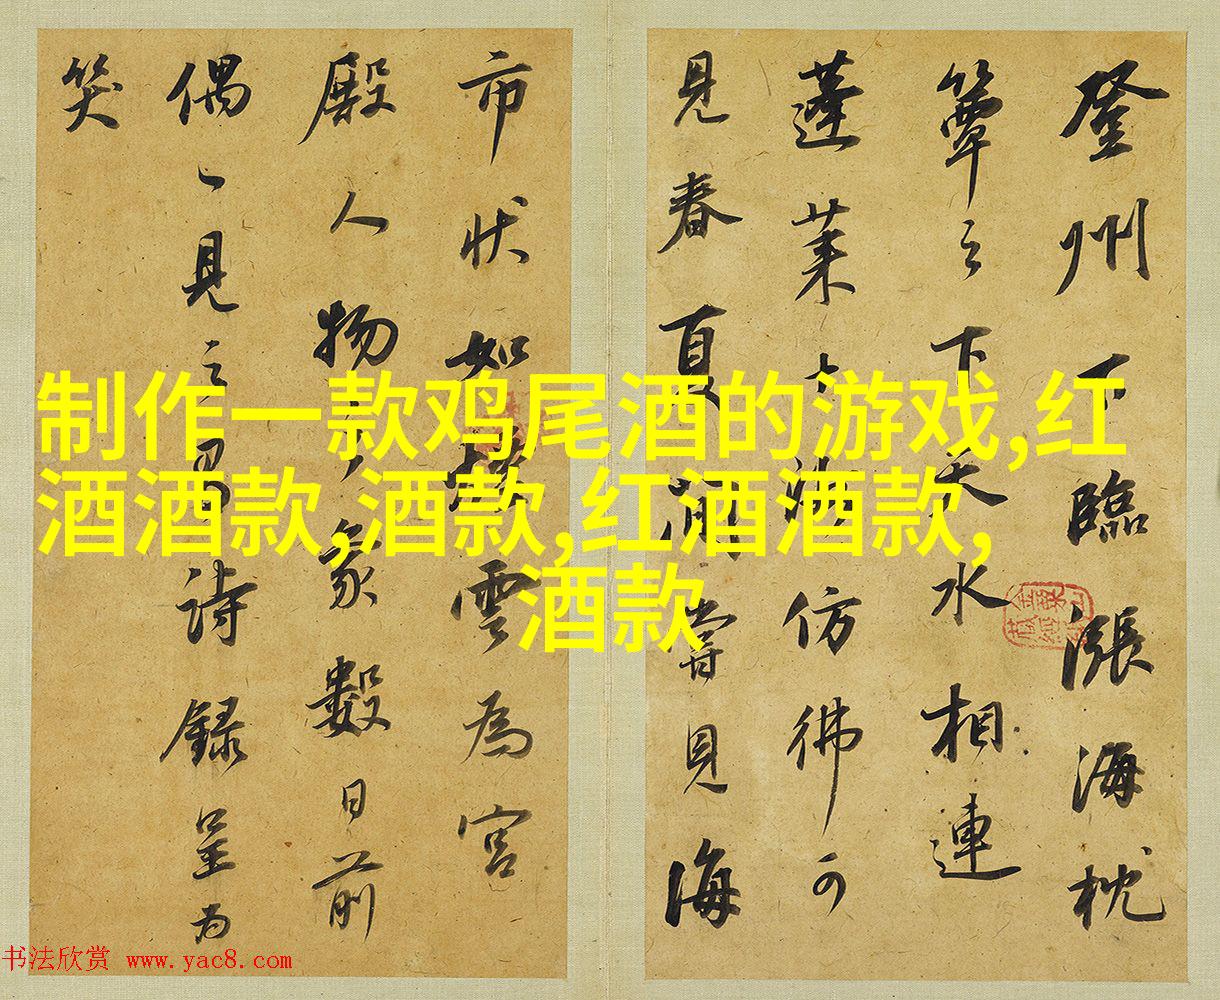 登州下臨漲海枕
簟之下天水相連
蓬莱仿彿可
見春夏間嘗見海
市状如雲為宮
殿人物象數日前
偶見之詩録呈为
笑
制作一款鸡尾酒的游戏,红
酒酒款,酒款,红酒酒款,
酒款
书法欣赏 www.yac8.com